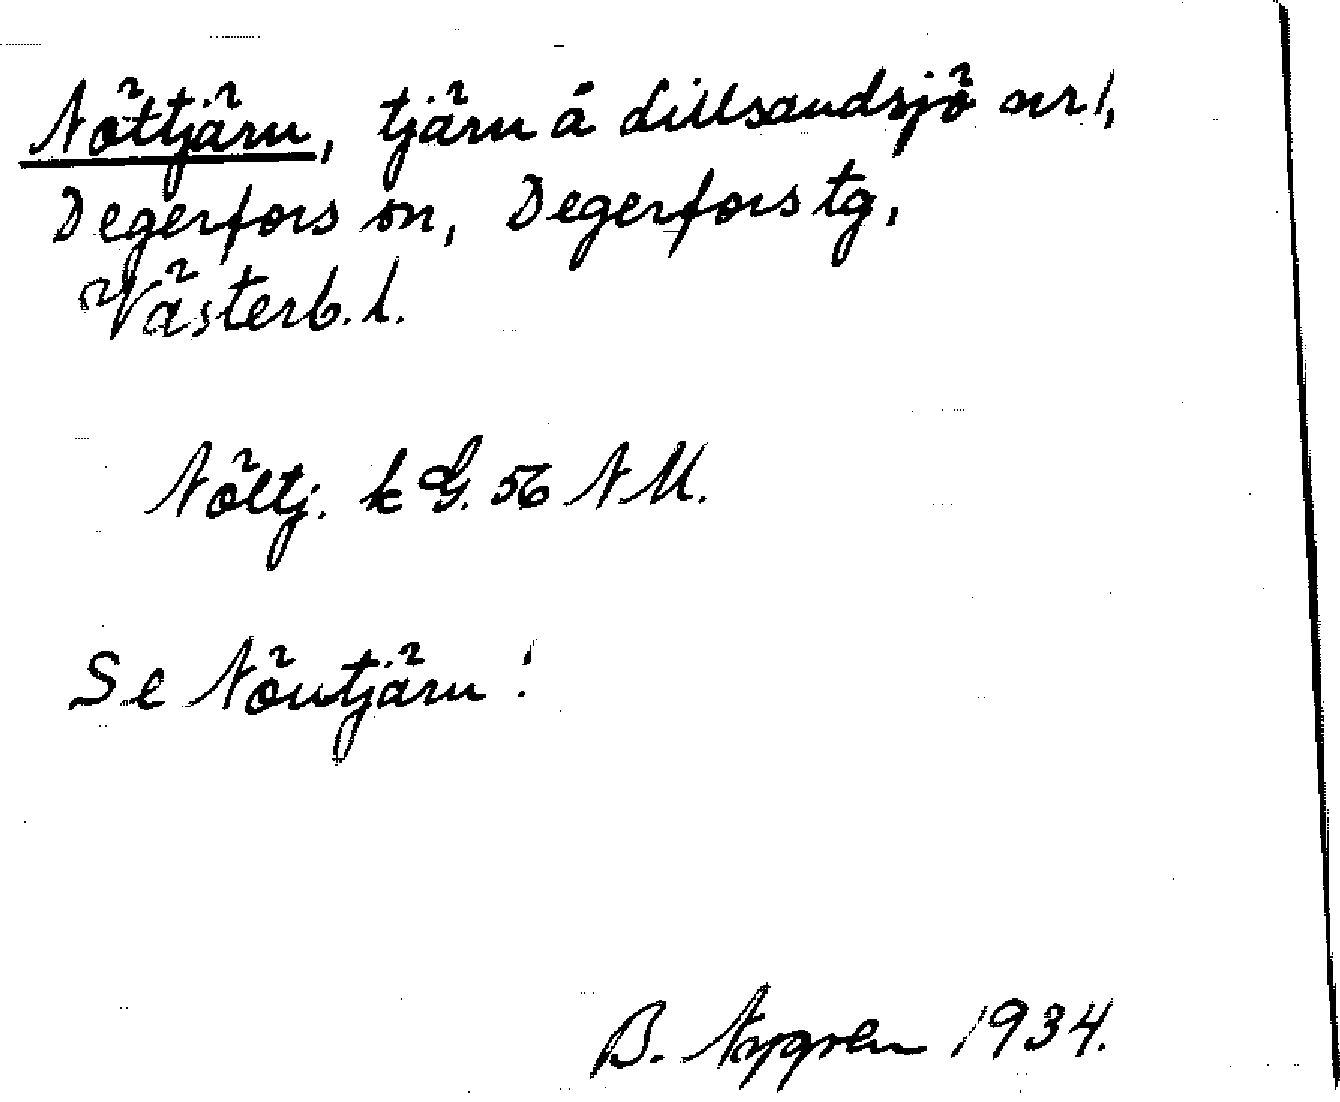 Nöttjärn, tjärn å Lillsandsjö nr 1,
Degerfors sn, Degerfors tg,
Västerb. l.
Nöttj. k G. 56 N M.
Se Nöutjärn!
B. Nygren 1934.